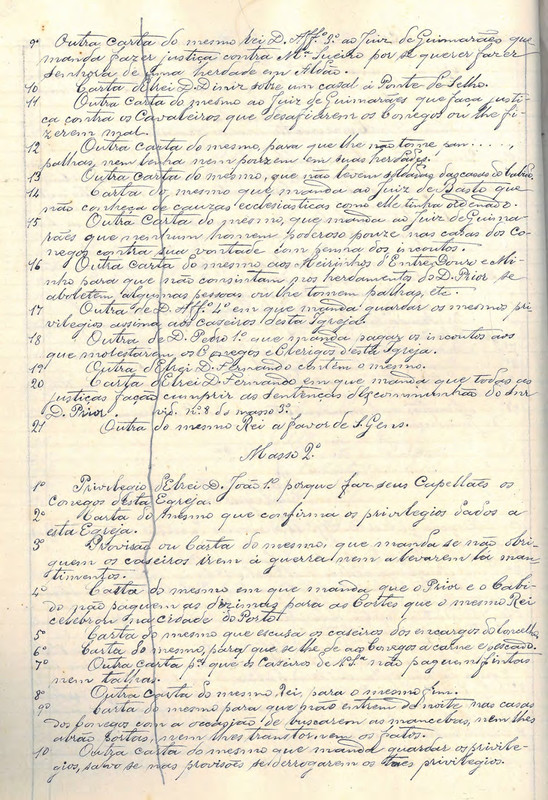 9º Outra Carta do mesmo Rei D. Affº 3º ao Juiz de Guimarães que
manda fazer justiça contra Mª Sueiro por se querer fazer
senhora de huma herdade em Aldão.
10 Carta d'Elrei D. Diniz sobre um casal á Ponte do Selho.
11 Outra Carta do mesmo ao Juiz de Guimarães que faça justi-
ça contra os Cavaleiros que desafiarem os Conegos ou lhe fi-
zerem mal.
12 Outra Carta do mesmo, para que lhe não tome
palhas, nem lenha nem pouzem em suas herdades.
13 Outra Carta do mesmo, que não levem das casas do Cabido.
14 Carta do mesmo que manda ao Juiz de Basto que
não conheça de cauzas ecclesiasticas como elle tinha ordenado.
15 Outra Carta do mesmo, que manda ao Juiz de Guima-
rães que nenhum homem poderoso pouze nas cazas dos Co-
negos contra sua vontade com penna dos incoutos.
16 Outra Carta do mesmo aos Meirinhos d'Entre Douro e Mi-
nho para que não consintam nos herdamentos do D. Prior se
aboletem algumas pessoas ou lhe tomem palhas, etc.
17 Outra de D. Affº 4º em que manda guardar os mesmos pri-
vilegios assima aos caseiros desta Igreja.
18 Outra de D. Pedro 1º que manda pagar os incoutos aos
que molestarem os Conegos e Clerigos d'esta Igreja.
19 Outra d'Elrei D. Fernando contém o mesmo.
20 Carta d'Elrei D. Fernando em que manda que todas as
justiças fação cumprir as sentenças d'escommunhão do Snr
D. Prior. vid. nº 8 do masso 3º
21 Outra do mesmo Rei a favor de S. Gens.
Masso 2º
1º Privilegio d'Elrei D. João 1º porque faz seus Capellães os
Conegos d'esta Egreja.
2º Carta do mesmo que confirma os privilegios dados a
esta Egreja.
3º Provisão ou Carta do mesmo, que manda se não obri-
guem os caseiros irem á guerra nem a levarem lá man-
timentos.
4º Carta do mesmo em que manda que o Prior e o Cabi-
do não paguem as dizimas para as Cortes que o mesmo Rei
celebrou na cidade do Porto.
5º Carta do mesmo que escusa os caseiros dos encargos do concelho.
6º Carta do mesmo, para que se lhe dê aos Conegos a carne e pescado.
7º Outra Carta pª que os Caseiros de N. Srª não paguem fintas
nem talhas.
8º Outra Carta do mesmo Rei, para o mesmo fim.
9º Carta do mesmo para que não entrem de noite nas casas
dos Conegos com a occasião de buscarem as mancebas, nem lhes
abrão portas, nem lhes transtornem os fatos.
10 Outra Carta do mesmo que manda guardar os privile-
gios, salvo se nas provisões se derrogarem os taes privilegios.